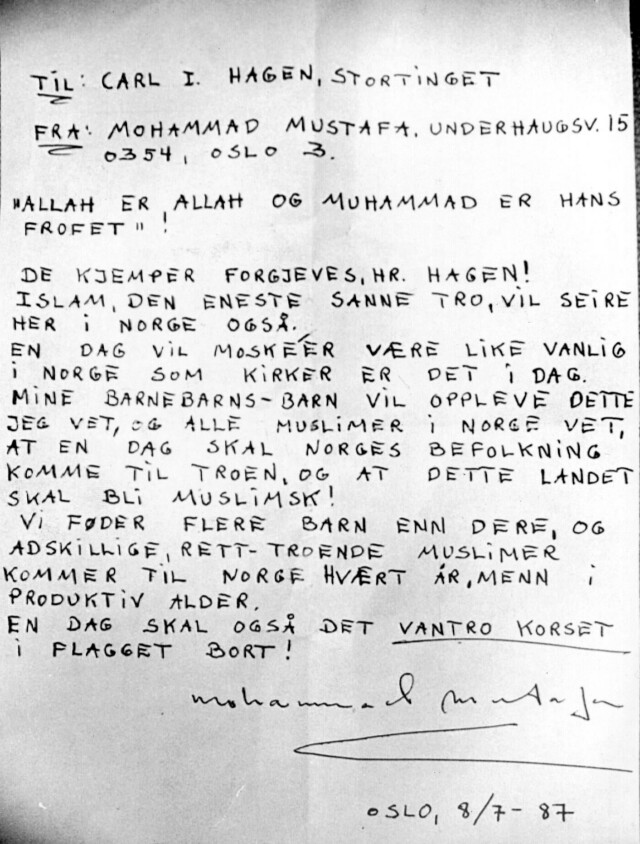 TIL: CARL I. HAGEN, STORTINGET
FRA: MOHAMMAD MUSTAFA, UNDERHAUGSV. 15
0354, OSLO 3.
"ALLAH ER ALLAH OG MUHAMMAD ER HANS
FROFET"!
DE KJEMPER FORGJEVES, HR. HAGEN!
ISLAM, DEN ENESTE SANNE TRO, VIL SEIRE
HER i NORGE OGSÅ.
EN DAG ViL MOSKÉER VÆRE LIKE VANLIG
i NORGE SOM KIRKER ER DET i DAG.
MINE BARNEBARNS-BARN VIL OPPLEVE DETTE
JEG VET, OG ALLE MUSLIMER i NORGE VET,
AT EN DAG SKAL NORGES BEFOLKNING
KOMME TIL TROEN, OG AT DETTE LANDET
SKAL BLI MUSLIMSK!
Vi FØDER FLERE BARN ENN DERE, OG
ADSKILLIGE, RETT-TROENDE MUSLIMER
KOMMER TIL NORGE HVÆRT ÅR, MENN i
PRODUKTIV ALDER.
EN DAG SKAL OGSÅ DET VANTRO KORSET
i FLAGGET BORT!
mohammad mustafa
OSLO, 8/7-87